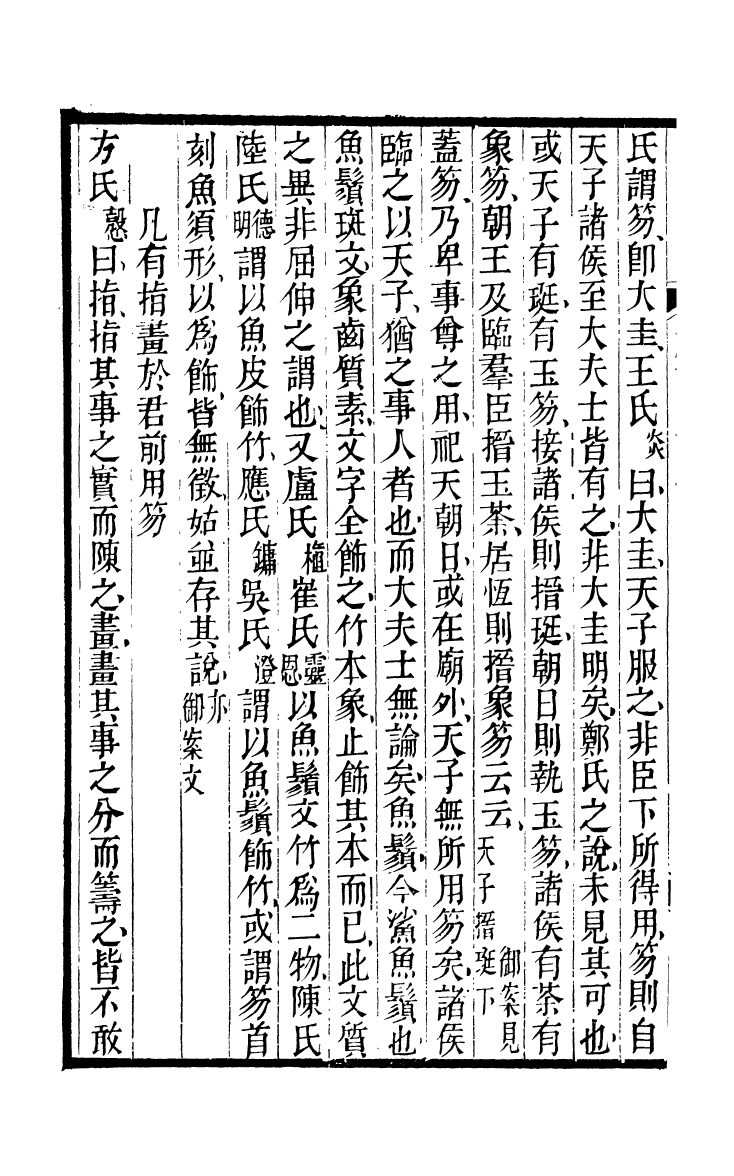 氏謂笏、卽大圭、王氏炎曰、大圭、天子服之、非臣下所得用、笏則自
天子諸侯至大夫士皆有之、非大圭明矣、鄭氏之說、未見其可也、
或天子有珽、有玉笏、接諸侯則搢珽、朝日則執玉笏、諸侯有荼有
象笏、朝王及臨羣臣搢玉荼、居恆則搢象笏云云、御案見天子搢珽下
蓋笏、乃卑事尊之用、祀天朝日、或在廟外、天子無所用笏矣、諸侯
臨之以天子、猶之事人者也、而大夫士無論矣、魚鬚、今鯊魚鬚也、
魚鬚斑文、象齒質素、文字全飾之、竹本象、止飾其本而已、此文質
之異、非屈伸之謂也、又盧氏植崔氏靈恩以魚鬚文竹爲二物、陳氏
陸氏德明謂以魚皮飾竹、應氏鏞吳氏澄謂以魚鬚飾竹、或謂笏首
刻魚須形、以爲飾、皆無徵、姑並存其說、亦御案文
凡有指畫於君前用笏
方氏慤曰、指、指其事之實而陳之、畫、畫其事之分而籌之、皆不敢